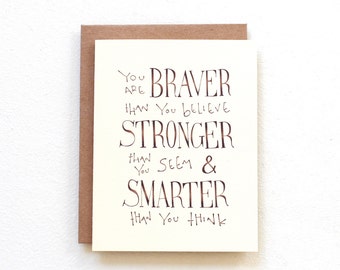 YOU ARE BRAVER
than you believe
STRONGER
than you SEEM &
SMARTER
than you think